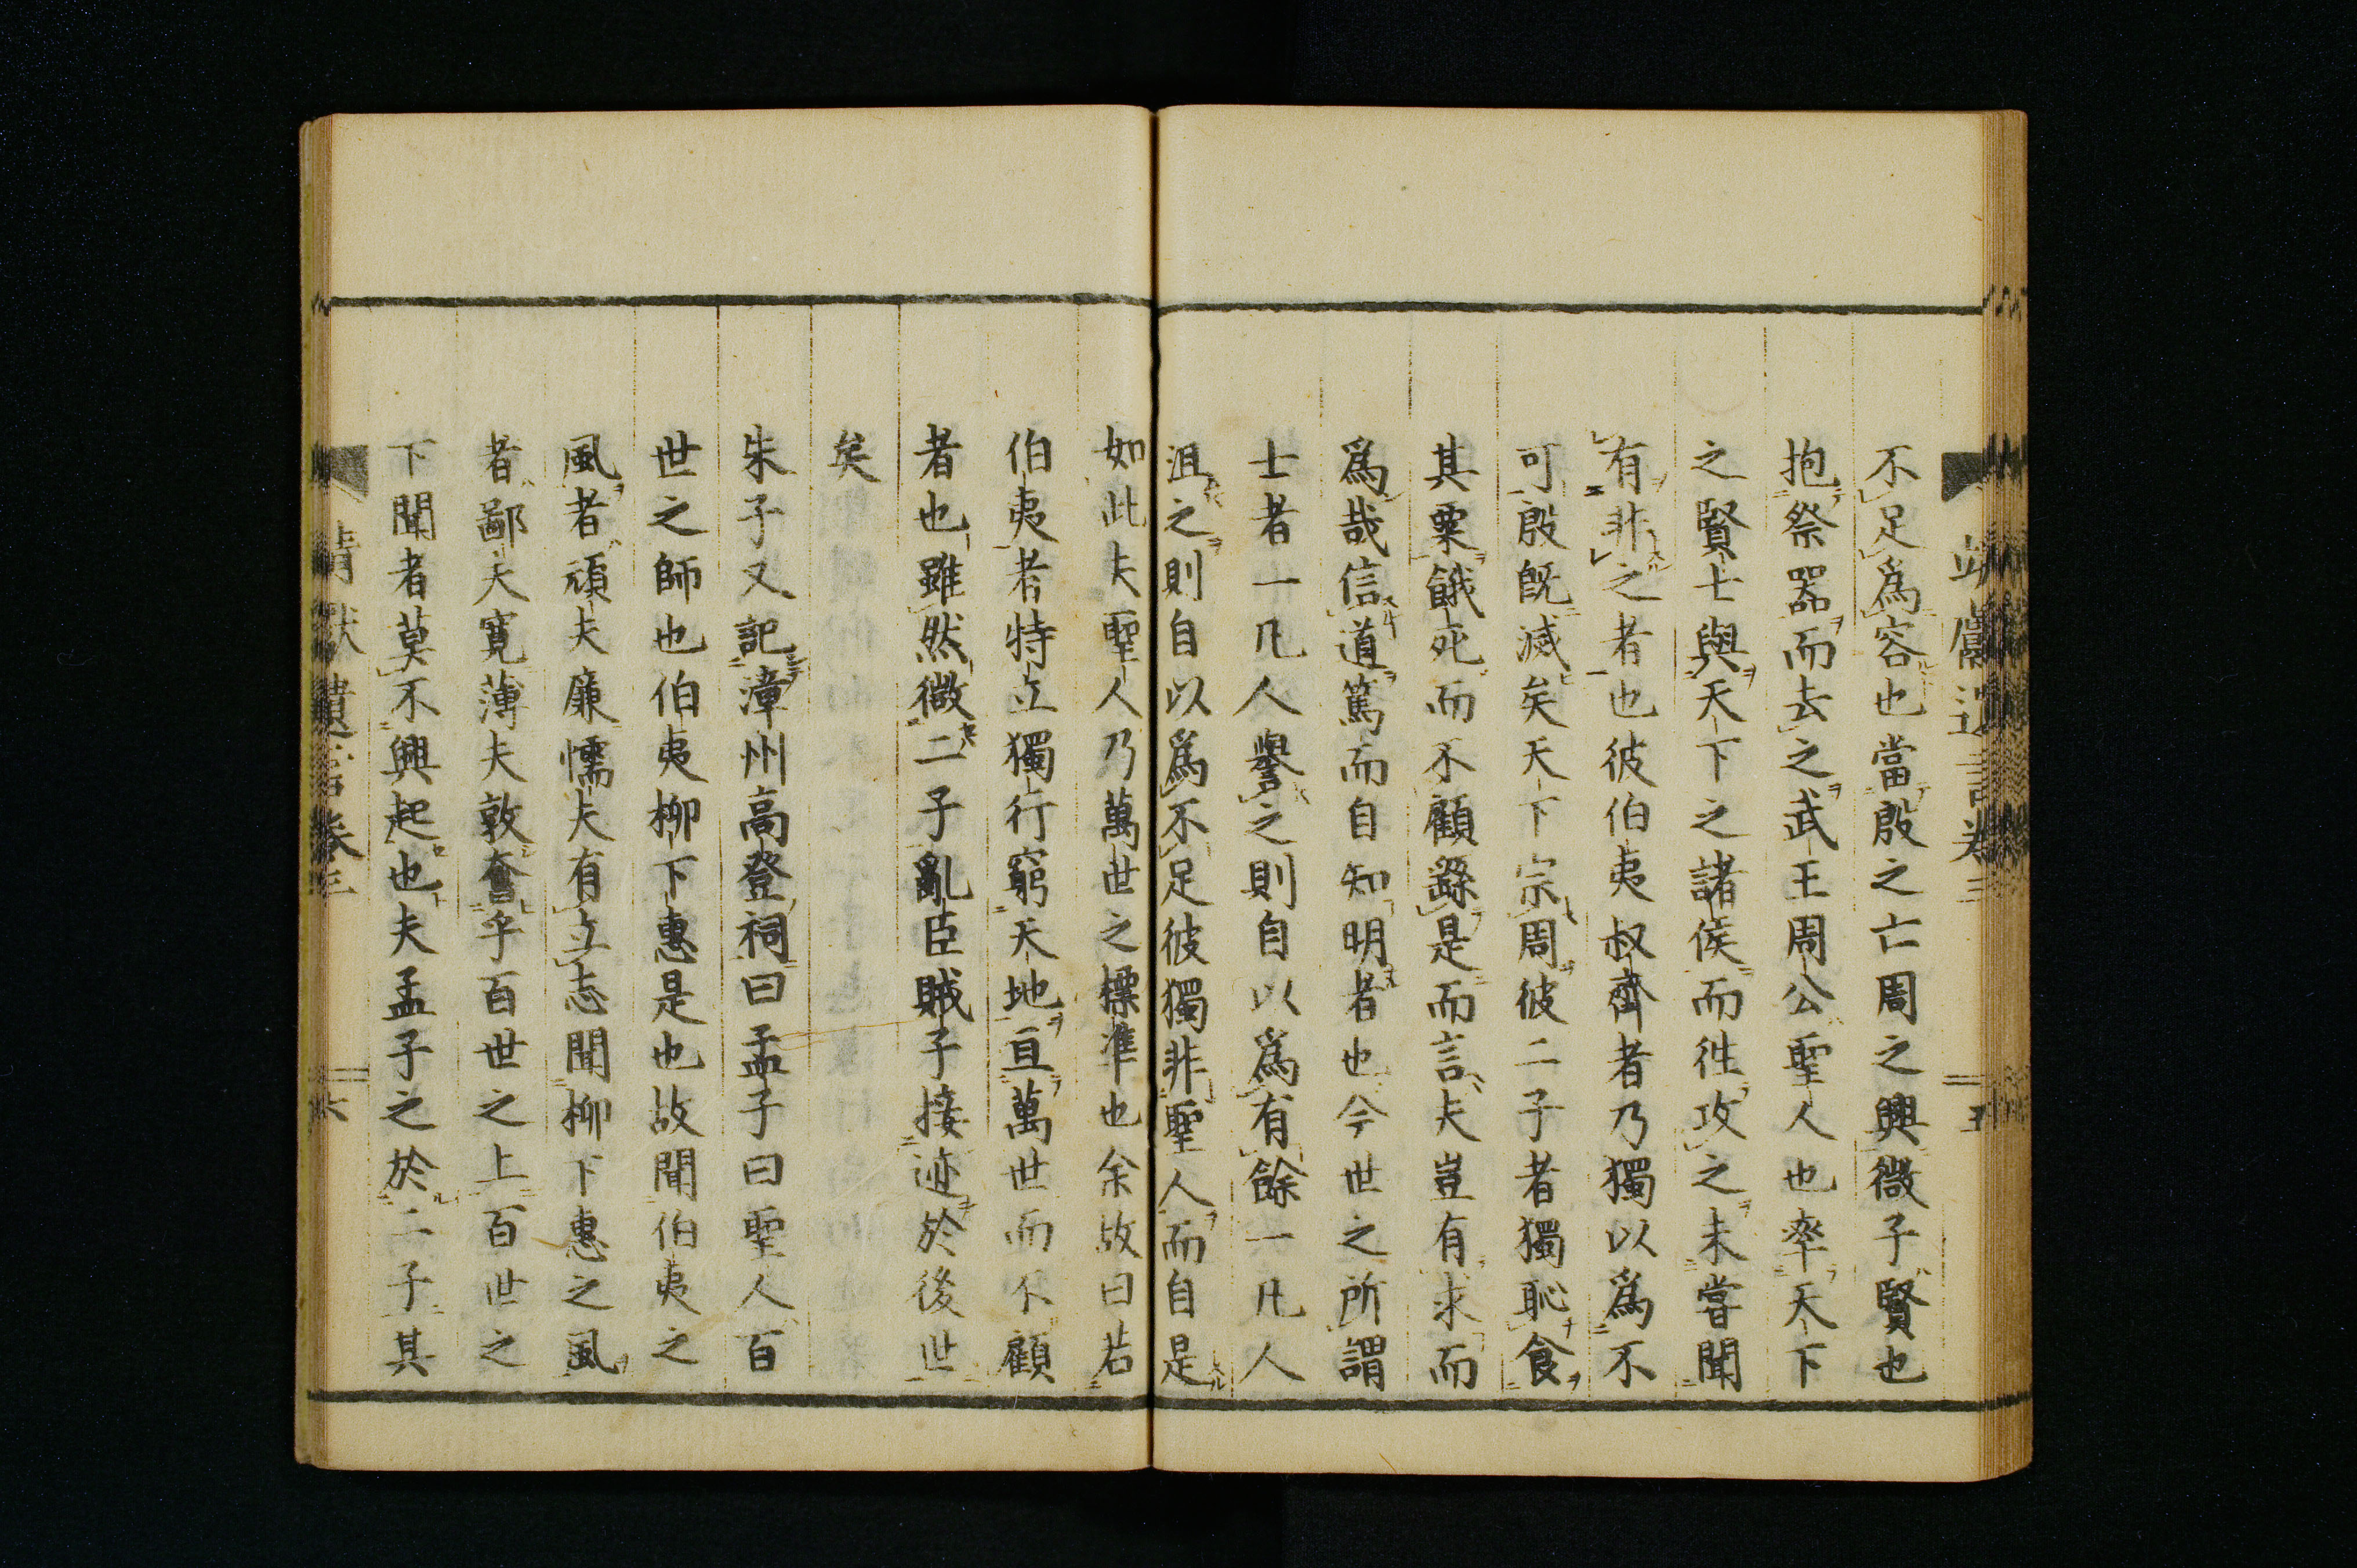 不足爲容也當殷之亡周之興微子賢也
抱祭器而去之武王周公聖人也率天下
之賢士與天下之諸侯而徃攻之未嘗聞
有非之者也彼伯夷叔齊者乃獨以爲不
可殷既滅矣天下宗周彼二子者獨恥食
其粟餓死而不顧繇是而言夫豈有求而
爲哉信道篤而自知明者也今世之所謂
士者一凡人譽之則自以爲有餘一凡人
沮之則自以爲不足彼獨非聖人而自是
如此夫聖人乃萬世之標準也余故曰若
伯夷者特立獨行窮天地亘萬世而不顧
者也雖然微二子亂臣賊子接迹於後世
矣
朱子又記漳州高登祠曰孟子曰聖人百
世之師也伯夷柳下惠是也故聞伯夷之
風者頑夫廉懦夫有立志聞柳下惠之風
者鄙夫寛薄夫敦奮乎百世之上百世之
下聞者莫不興起也夫孟子之於二子其